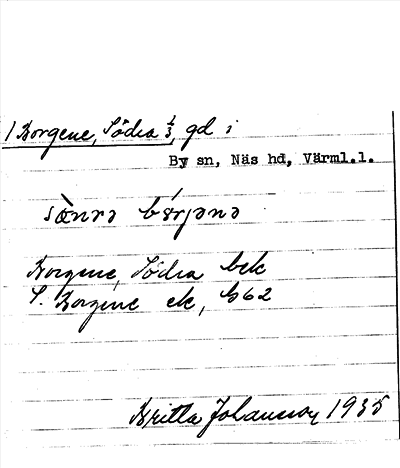 1 Borgene, Södra 1/3, gd i
By sn, Näs hd, Värml.l.
sœ̀nrə bórjənə
Borgene, Södra bek
S. Borgene ek, b62
Britta Johansson 1935